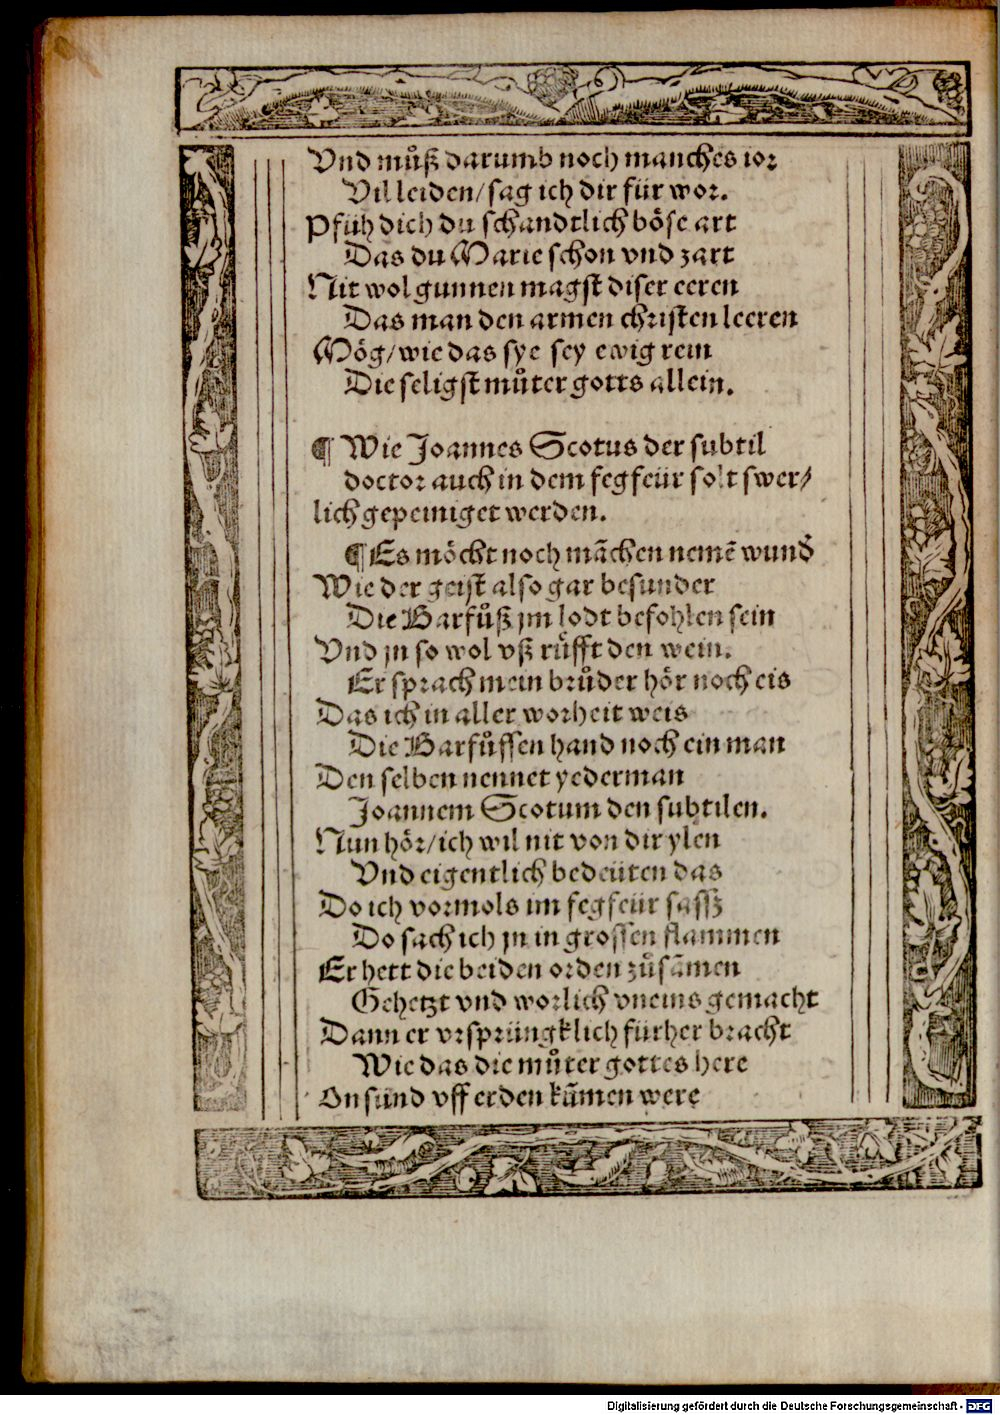 Vnd můß darumb noch manches ior
Vil leiden/ sag ich dir für wor.
Pfüh dich du schandtlich böse art
Das du Marie schon vnd zart
Nit wol gunnen magst diser eeren
Das man den armen christen leeren
Mög/ wie das sye sey ewig rein
Die seligst můter gotts allein.
¶ Wie Joannes Scotus der subtil
doctor auch in dem fegfeür solt swer/
lich gepeiniget werden.
¶ Es möcht noch mãchen nemẽ wund
Wie der geist also gar besunder
Die Barfůß jm lodt befohlen sein
Vnd jn so wol vß rüfft den wein.
Er sprach mein brůder hör noch eis
Das ich in aller worheit weis
Die Barfůssen hand noch ein man
Den selben nennet yederman
Joannem Scotum den subtilen.
Nun hör/ ich wil nit von dir ylen
Vnd eigentlich bedeüten das
Do ich vormols im fegfeür sassz
Do sach ich jn in grossen flammen
Er hett die beiden orden zůsãmen
Gehetzt vnd worlich vneins gemacht
Dann er vrsprüngklich fürher bracht
Wie das die můter gottes here
On sünd vff erden kũmen were
Digitalisierung gefördert durch die Deutsche Forschungsgemeinschaft - DFG